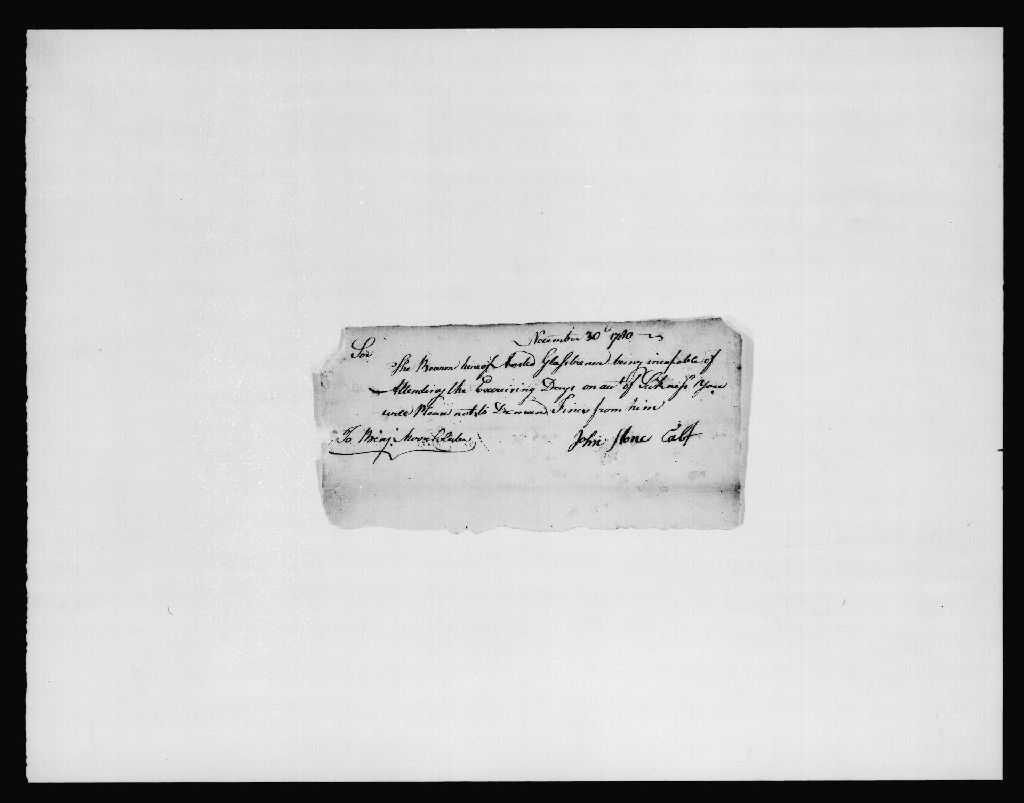 November 30th 1780
Sir
The Bearer hereof Glassbrener being incapable of
Attending the Exercising Days on acct of Sickness You
will Please not to Demand Fines from him
To Benj. John Stone Capt